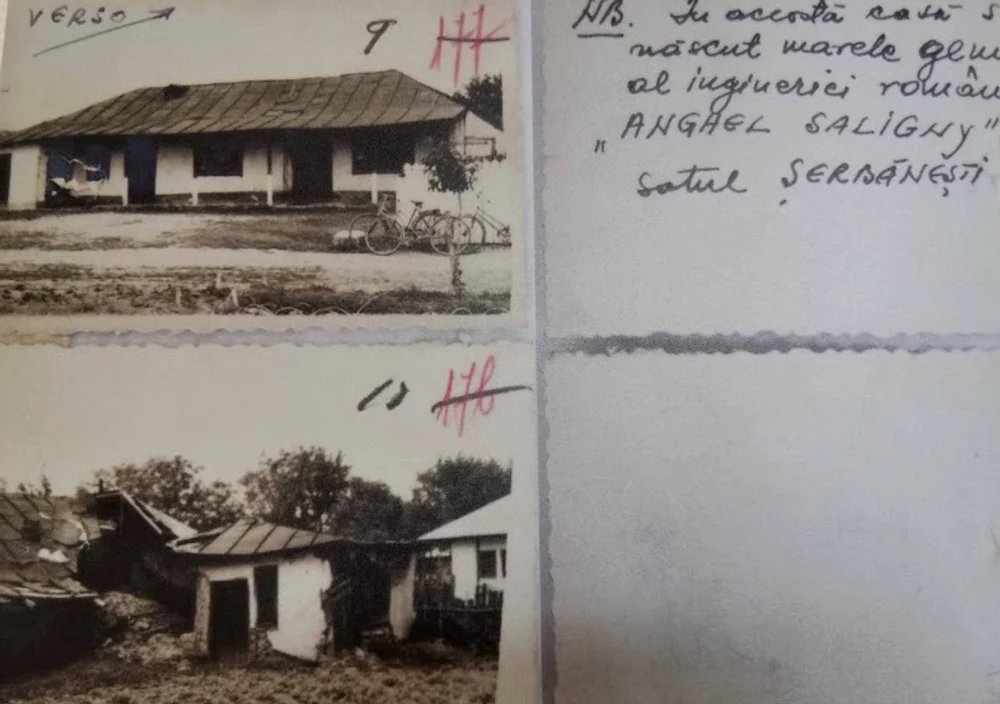 VERSO
9
177
NB. În această casă s
născut marele geni
al ingineriei român
„ANGHEL SALIGNY"
satul ȘERBĂNEȘTI
10
176